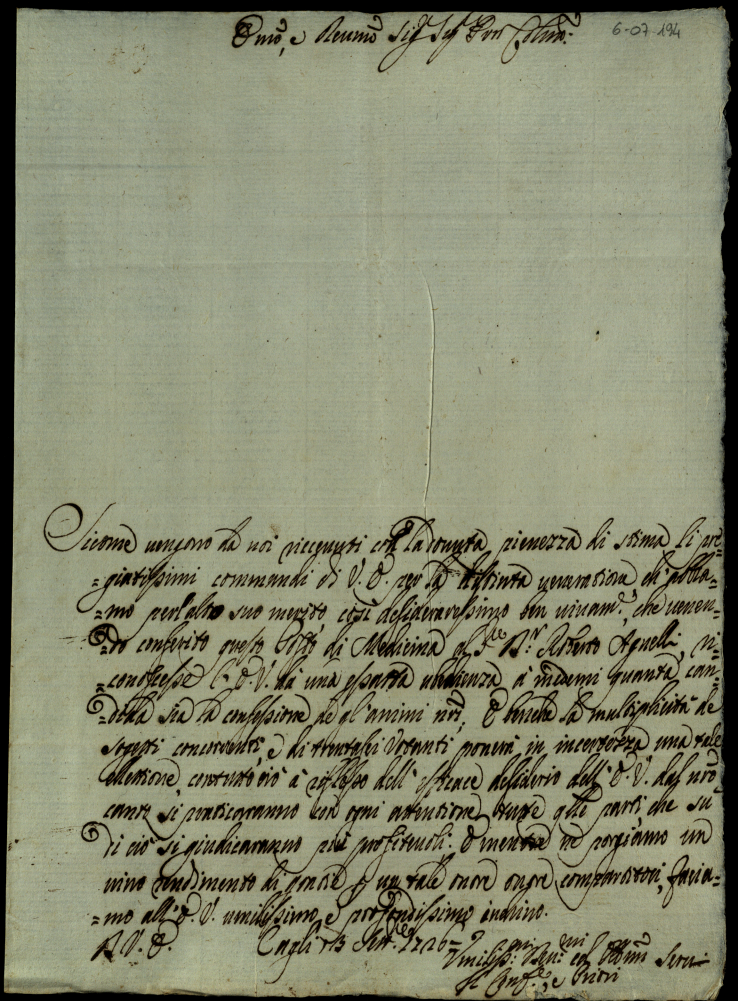 Emo, e Revmo Sigr Sigr Pron Colmo
6-07-194
Sicome vengono da noi riceuuti con la douuta pienezza di stima li pre=
=giatissimi commandi di V. E. per la distinta veneratione ch'abbia=
=mo per l'alto suo merito, così desideraressimo ben viuam.e, che venen=
=do conferito questo posto di Medicina al Sr Dr Roberto Agnelli, ri=
=conoscesse l'E. V. da una esparsa ubidienza à medemi quanto can=
=dida sia la confessione de gl'animi nri, E benche la multiplicità de
sogetti concorrenti, e di trentasei Votanti ponerà in incertezza una tale
ellettione, contuttociò à riflesso dell' desiderio dell' E. V. dal nro
canto si praticaranno con ogni attentione tutte q̃lle parti, che su
di ciò si giudicaranno più profiteuoli. E mentre ne porgiamo un
viuo rendimento di gratie p un tale onore compartitoci, facia=
=mo all' E. V. umilissimo, e profondissimo inchino.
D. V. E. Cagli 13 Sett.re 1726
Vmiliss.mi Deu.mi ed Obbmi Seru.
Il Conf.re, e Priori